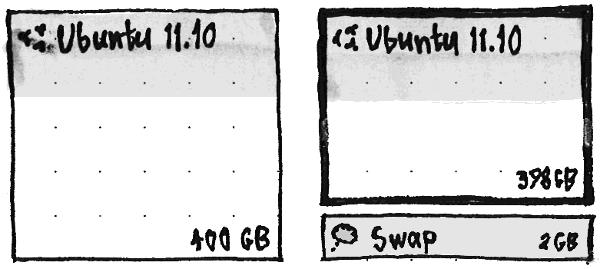 Ubuntu 11.10
400 GB
Ubuntu 11.10
398 GB
Swap
2 GB